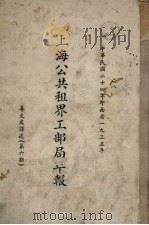 中华民國二十四年即西曆一九三五年
上海公共租界工部局年報
華文處譯述（第六期）